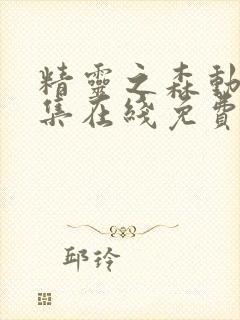 精靈之森動
集在綫免費
邱玲